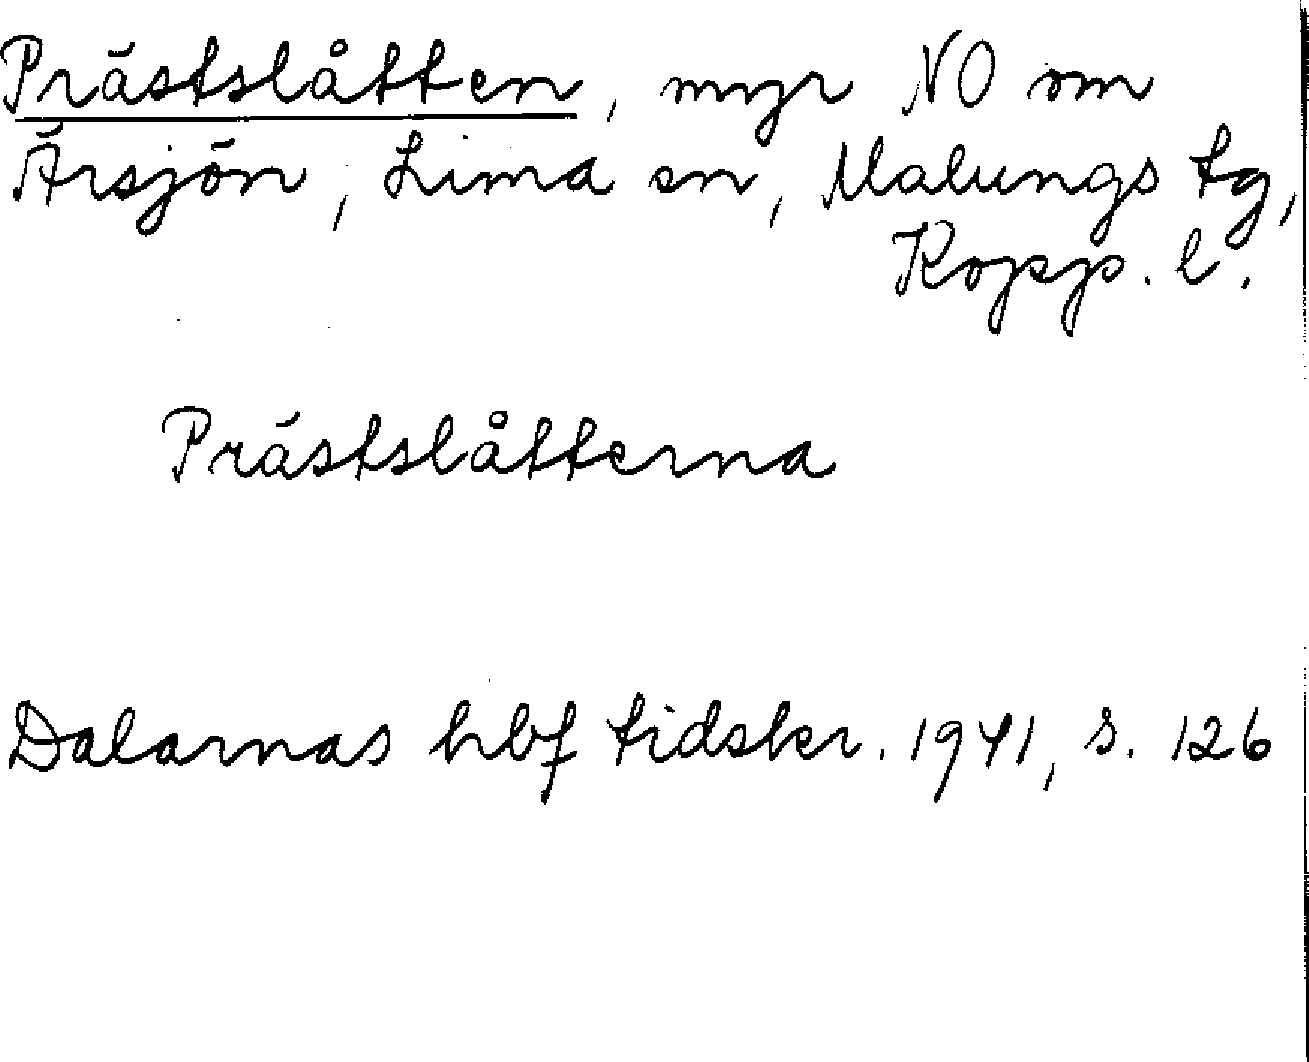 Prästslåtten, myr NO om
Ärsjön, Lima sn, Malungs tg,
Kopp. l.
Prästslåtterna
Dalarnas hbf tidskr. 1941, s. 126